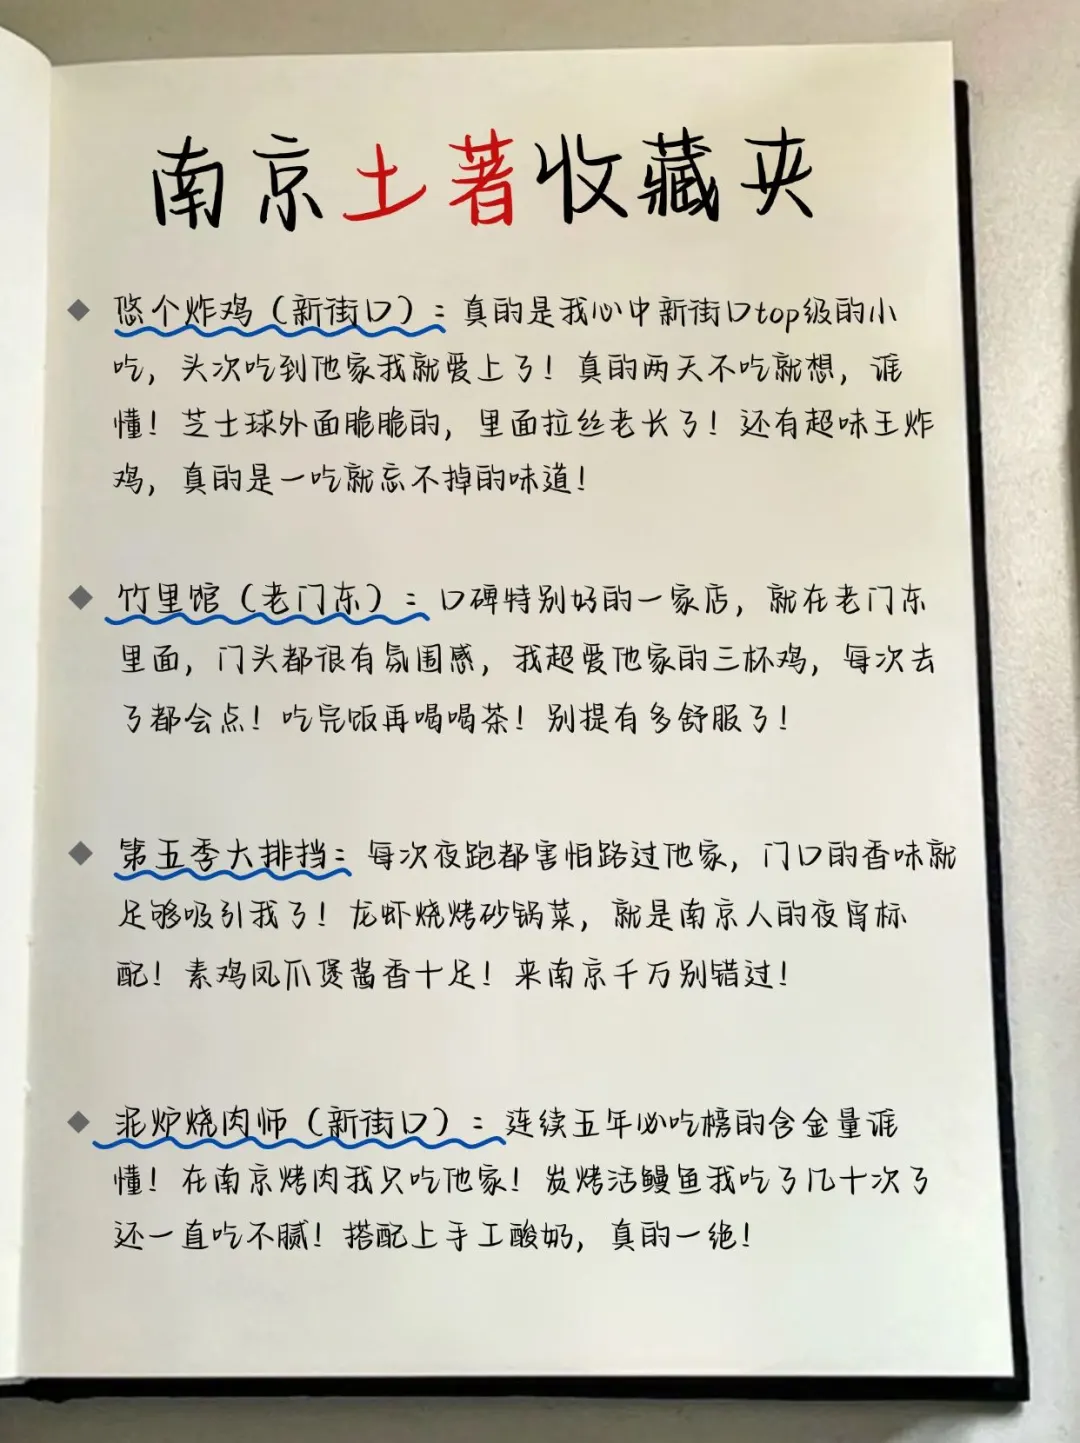 南京土著收藏夹
悠个炸鸡（新街口）：真的是我心中新街口top级的小
吃，头次吃到他家我就爱上了！真的两天不吃就想，谁
懂！芝士球外面脆脆的，里面拉丝老长了！还有超味王炸
鸡，真的是一吃就忘不掉的味道！
竹里馆（老门东）：口碑特别好的一家店，就在老门东
里面，门头都很有氛围感，我超爱他家的三杯鸡，每次去
了都会点！吃完饭再喝喝茶！别提有多舒服了！
第五季大排挡：每次夜跑都害怕路过他家，门口的香味就
足够吸引我了！龙虾烧烤砂锅菜，就是南京人的夜宵标
配！素鸡凤爪煲酱香十足！来南京千万别错过！
泥炉烧肉师（新街口）：连续五年必吃榜的含金量谁
懂！在南京烤肉我只吃他家！炭烤活鳗鱼我吃了几十次了
还一直吃不腻！搭配上手工酸奶，真的一绝！